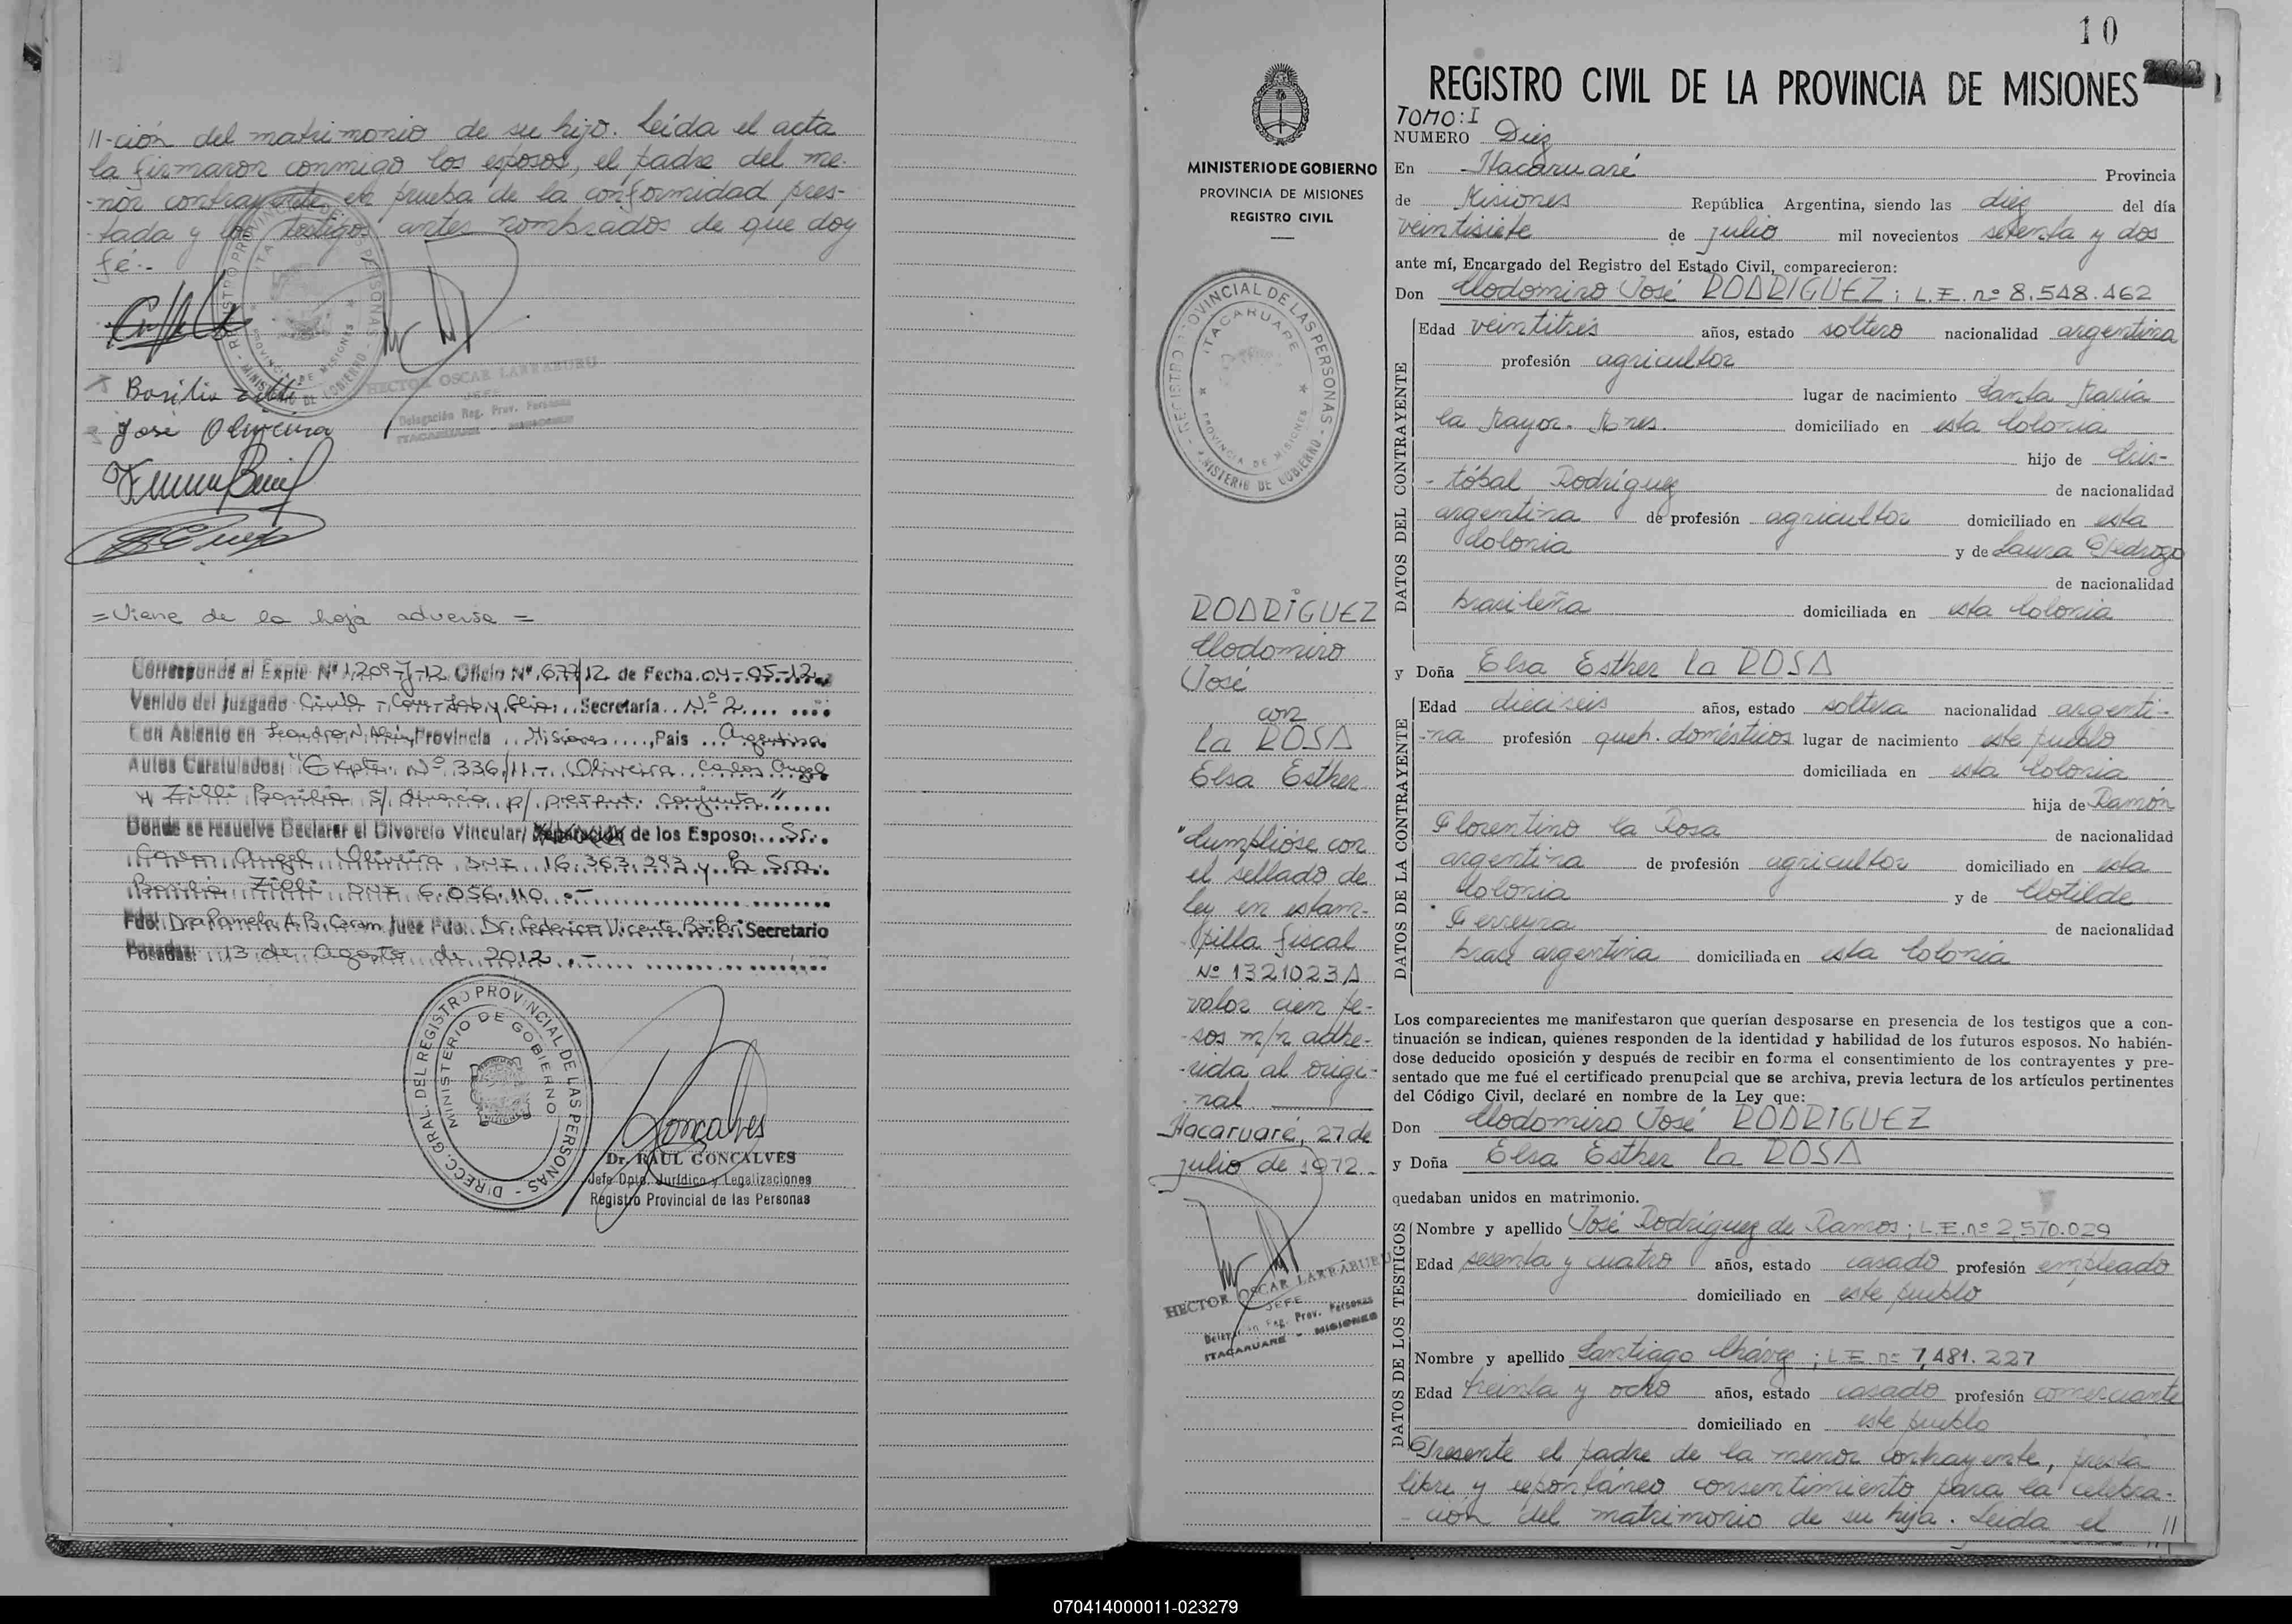 //-ción del matrimonio de su hijo. Leída el acta
la firmaron conmigo los esposos, el padre del me-
-nor contrayente en prueba de la conformidad pres-
-tada y los testigos antes nombrados de que doy
fé.-
HECTOR OSCAR LARRABURU
JEFE
Delegación Reg. Prov. Personas
ITACARUARE - MISIONES
Basilia Zilli
José Oliveira
=Viene de la hoja adversa=
Corresponde al Expte Nº 1.209-J-12 Oficio Nº 677/12 de Fecha 04-05-12
Venido del Juzgado Civil - Com. Lab. y Flia. Secretaría Nº 2
Con Asiento en Leandro N. Alem, Provincia Misiones, País Argentina
Autos Caratulados: "Expte. Nº 336/11 - Oliveira Carlos Angel
y Zilli Basilia s/ divorcio p/ present. conjunta"
Donde se resuelve Declarar el Divorcio Vincular/ Separación de los Esposo: Sr.
Carlos Angel Oliveira DNI 16.363.293 y la Sra.
Basilia Zilli DNI 6.056.110.-
Fdo: Dra Pamela A.B. Juez Fdo: Dr. Federico Vicente Secretario
Posadas: 13 de Agosto de 2012.-
DIRECC. GRAL. DEL REGISTRO PROVINCIAL DE LAS PERSONAS -
MINISTERIO DE GOBIERNO
Goncalves
Dr. RAUL GONCALVES
Jefe Dpto. Jurídico y Legalizaciones
Registro Provincial de las Personas
10
REGISTRO CIVIL DE LA PROVINCIA DE MISIONES
MINISTERIO DE GOBIERNO
PROVINCIA DE MISIONES
REGISTRO CIVIL
- REGISTRO PROVINCIAL DE LAS PERSONAS -
ITACARUARE
PROVINCIA DE MISIONES
MINISTERIO DE GOBIERNO
RODRIGUEZ
Clodomiro
José
con
La ROSA
Elsa Esther
"Cumplióse con
el sellado de
ley en estam-
-pilla fiscal
Nº 1321023A
valor cien pe-
-sos m/n adhe-
-rida al origi-
-nal.
Itacaruaré, 27 de
julio de 1972.-
HECTOR OSCAR LARRABURU
JEFE
Delegación Reg. Prov. Personas
ITACARUARE - MISIONES
TOMO: I
NUMERO Diez
En Itacaruaré Provincia
de Misiones República Argentina, siendo las diez del día
veintisiete de julio mil novecientos setenta y dos
ante mí, Encargado del Registro del Estado Civil, comparecieron:
Don Clodomiro José RODRIGUEZ; L.E. nº 8.548.462
DATOS DEL CONTRAYENTE
Edad veintitrés años, estado soltero nacionalidad argentina
profesión agricultor
lugar de nacimiento Santa María
la Mayor. Mnes. domiciliado en esta Colonia
hijo de Cris-
-tóbal Rodríguez de nacionalidad
argentina de profesión agricultor domiciliado en esta
Colonia y de Laura Pedrozo
de nacionalidad
brasileña domiciliada en esta Colonia
y Doña Elsa Esther La ROSA
DATOS DE LA CONTRAYENTE
Edad dieciseis años, estado soltera nacionalidad argenti-
-na profesión queh. domésticos lugar de nacimiento este pueblo
domiciliada en esta Colonia
hija de Ramón
Florentino La Rosa de nacionalidad
argentina de profesión agricultor domiciliado en esta
Colonia y de Clotilde
Ferreyra de nacionalidad
bras argentina domiciliada en esta Colonia
Los comparecientes me manifestaron que querían desposarse en presencia de los testigos que a con-
tinuación se indican, quienes responden de la identidad y habilidad de los futuros esposos. No habién-
dose deducido oposición y después de recibir en forma el consentimiento de los contrayentes y pre-
sentado que me fué el certificado prenupcial que se archiva, previa lectura de los artículos pertinentes
del Código Civil, declaré en nombre de la Ley que:
Don Clodomiro José RODRIGUEZ
y Doña Elsa Esther La ROSA
quedaban unidos en matrimonio.
DATOS DE LOS TESTIGOS
Nombre y apellido José Rodríguez de Ramos; L.E. nº 2.570.029
Edad sesenta y cuatro años, estado casado profesión empleado
domiciliado en este pueblo
Nombre y apellido Santiago Chávez; L.E. nº 7.481.227
Edad treinta y ocho años, estado casado profesión comerciante
domiciliado en este pueblo
Presente el padre de la menor contrayente, presta
libre y espontáneo consentimiento para la celebra-
-ción del matrimonio de su hija. Leída el //
070414000011-023279